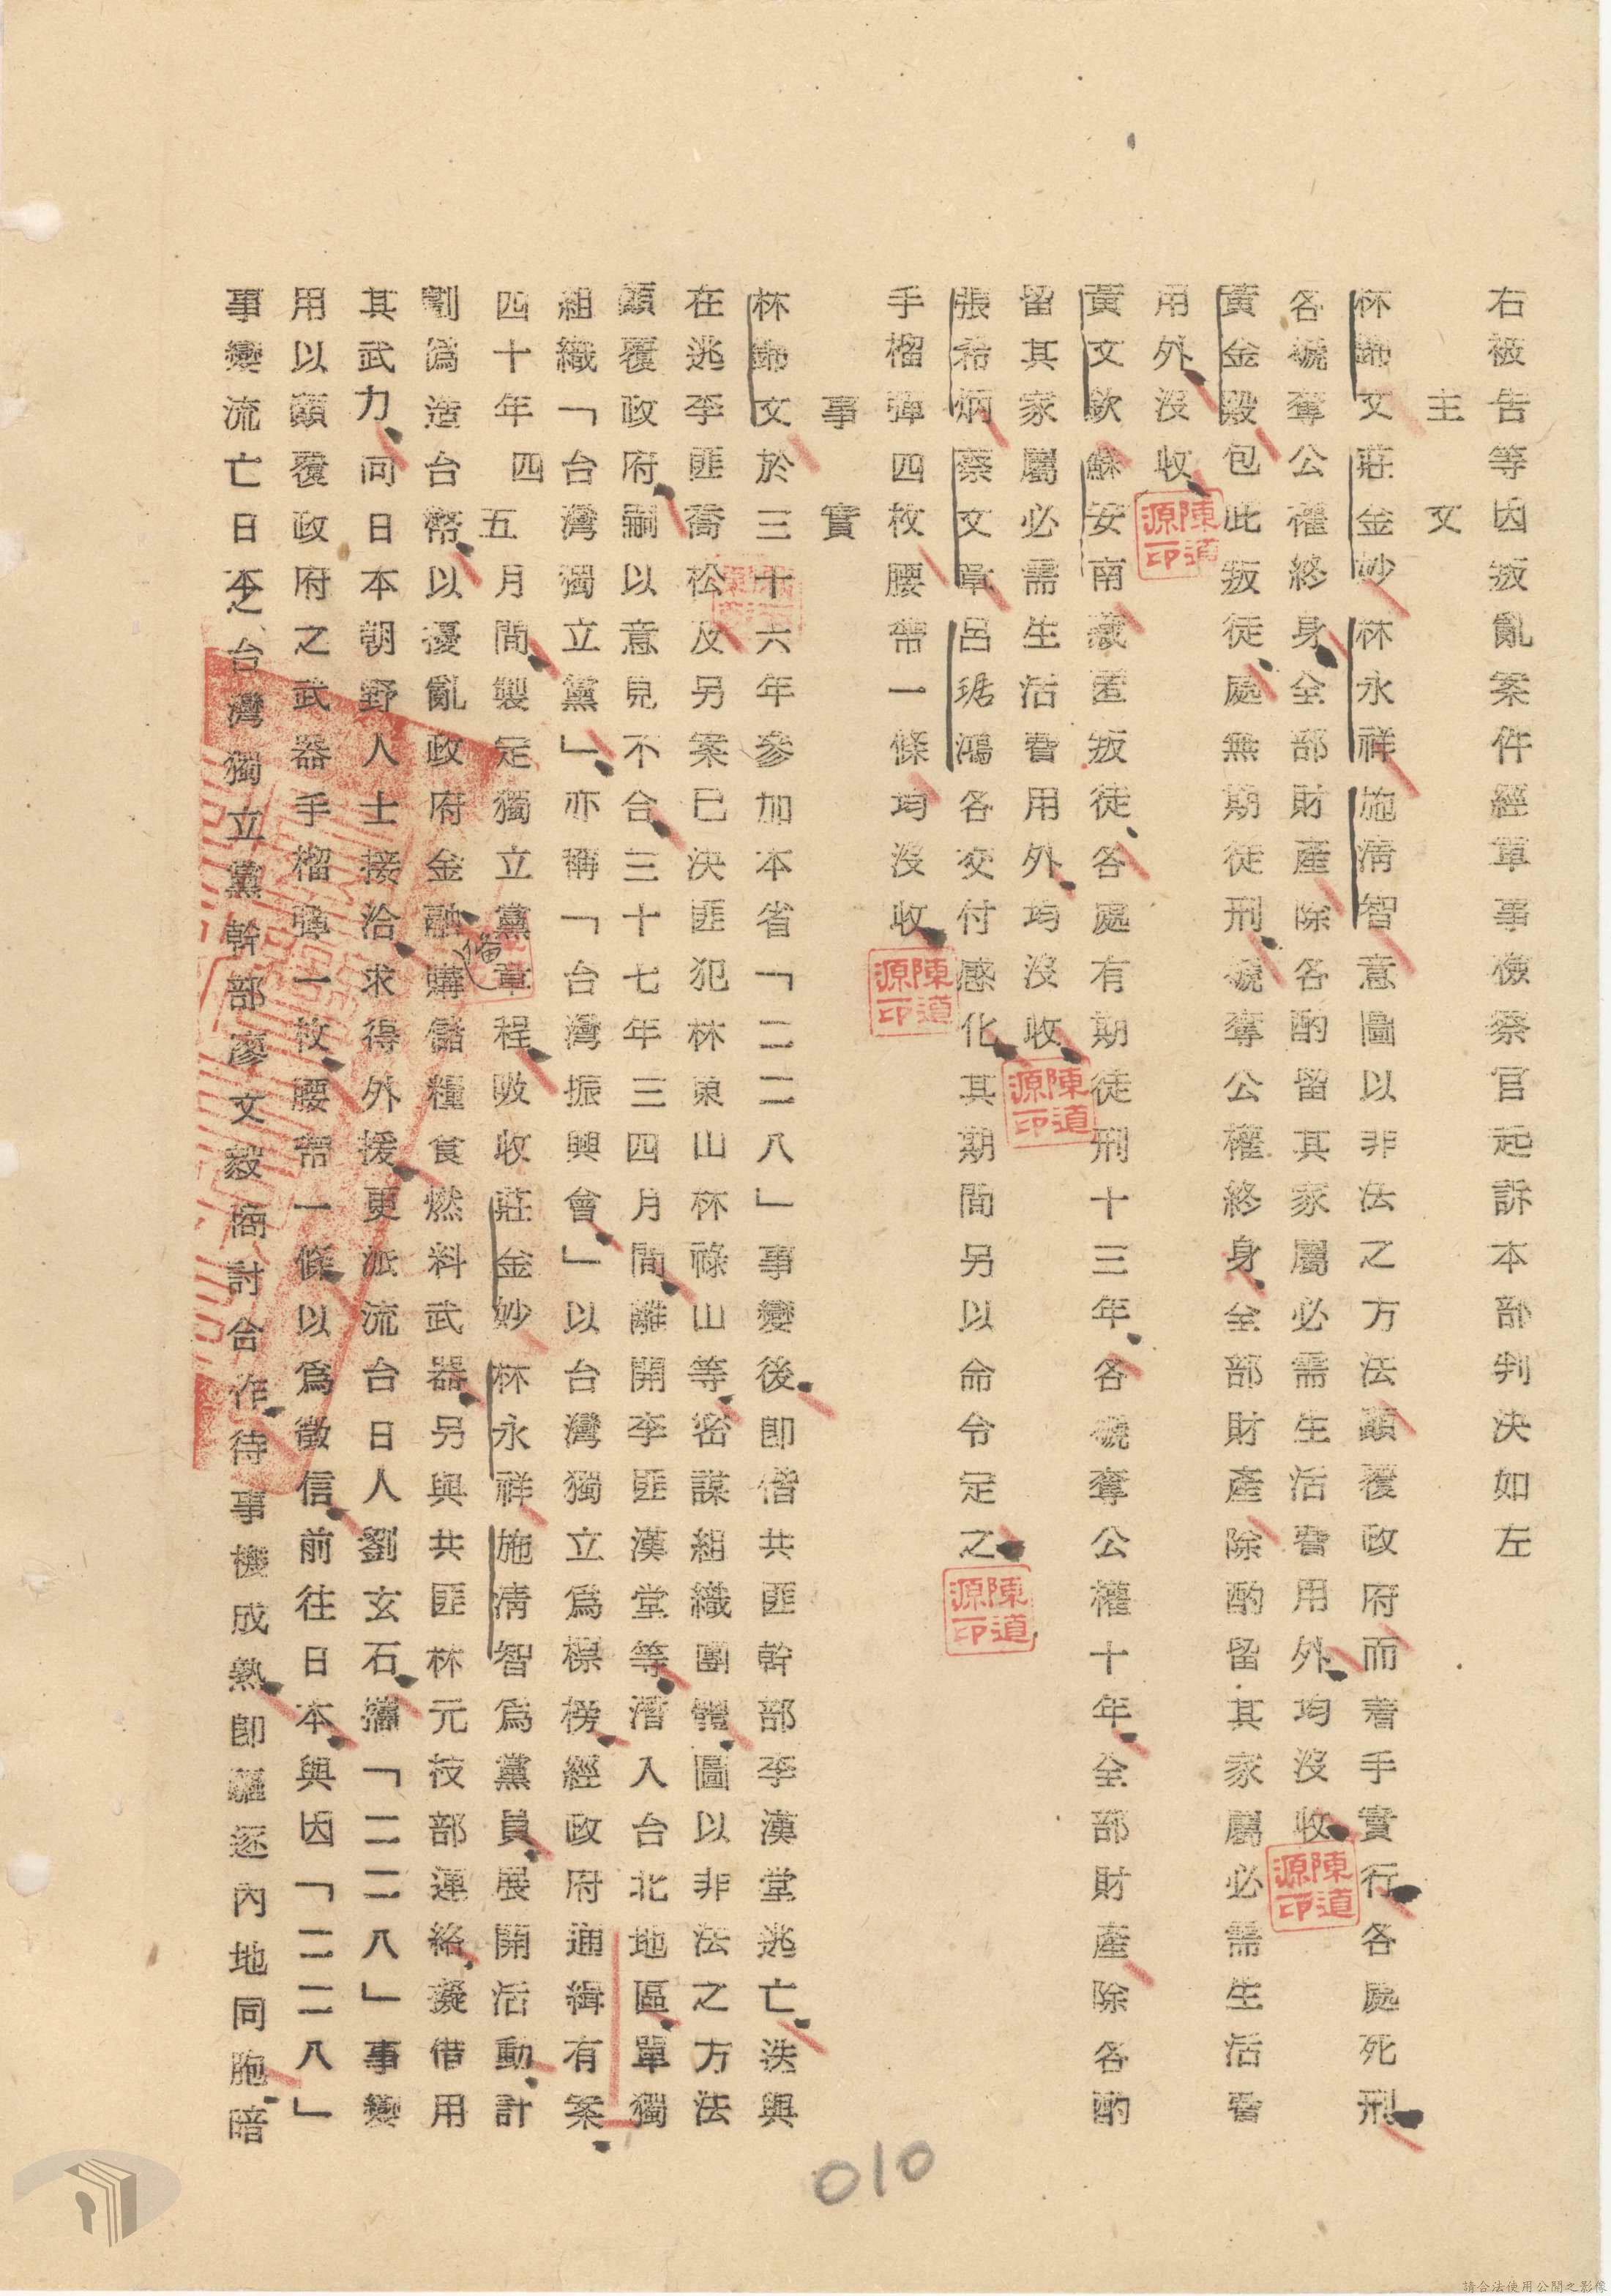 右被告等因叛亂案件經軍事檢察官起訴本部判決如左
主文
林錦文莊金妙林永祥施清智意圖以非法之方法顚覆政府而着手實行各處死刑
各褫奪公權終身全部財產除各酌留其家屬必需生活費用外均沒收
黃金殿包庇叛徒處無期徒刑褫奪公權終身全部財產除酌留其家屬必需生活費
用外沒收
黃文欽蘇安南藏匿叛徒各處有期徒刑十三年各褫奪公權十年全部財產除各酌
留其家屬必需生活費用外均沒收
張希炳蔡文章呂琚鴻各交付感化其期間另以命令定之
手榴彈四枚腰帶一條均沒收
事實
林錦文於三十六年參加本省「二二八」事變後卽偕共匪幹部李漢堂逃亡迭與
在逃李匪喬松及另案已決匪犯林東山林祿山等密謀組織團體圖以非法之方法
顚覆政府嗣以意見不合三十七年三四月間離開李匪漢堂等潛入台北地區單獨
組織「台灣獨立黨」亦稱「台灣振興會」以台灣獨立爲標榜經政府通緝有案
四十年四五月間製定獨立黨章程吸收莊金妙林永祥施清智爲黨員展開活動計
劃僞造台幣以擾亂政府金融購備儲糧食燃料武器另與共匪林元枝部連絡擬借用
其武力向日本朝野人士接洽求得外援更派流台日人劉玄石攜「二二八」事變
用以顚覆政府之武器手榴彈一枚腰帶一條以爲徵信前往日本與因「二二八」
事變流亡日本之台灣獨立黨幹部廖文毅商討合作待事機成熟卽驅逐內地同胞暗
陳道源印
陳道源印
陳道源印
陳道源印
陳道源印
010
請合法使用公開之影像